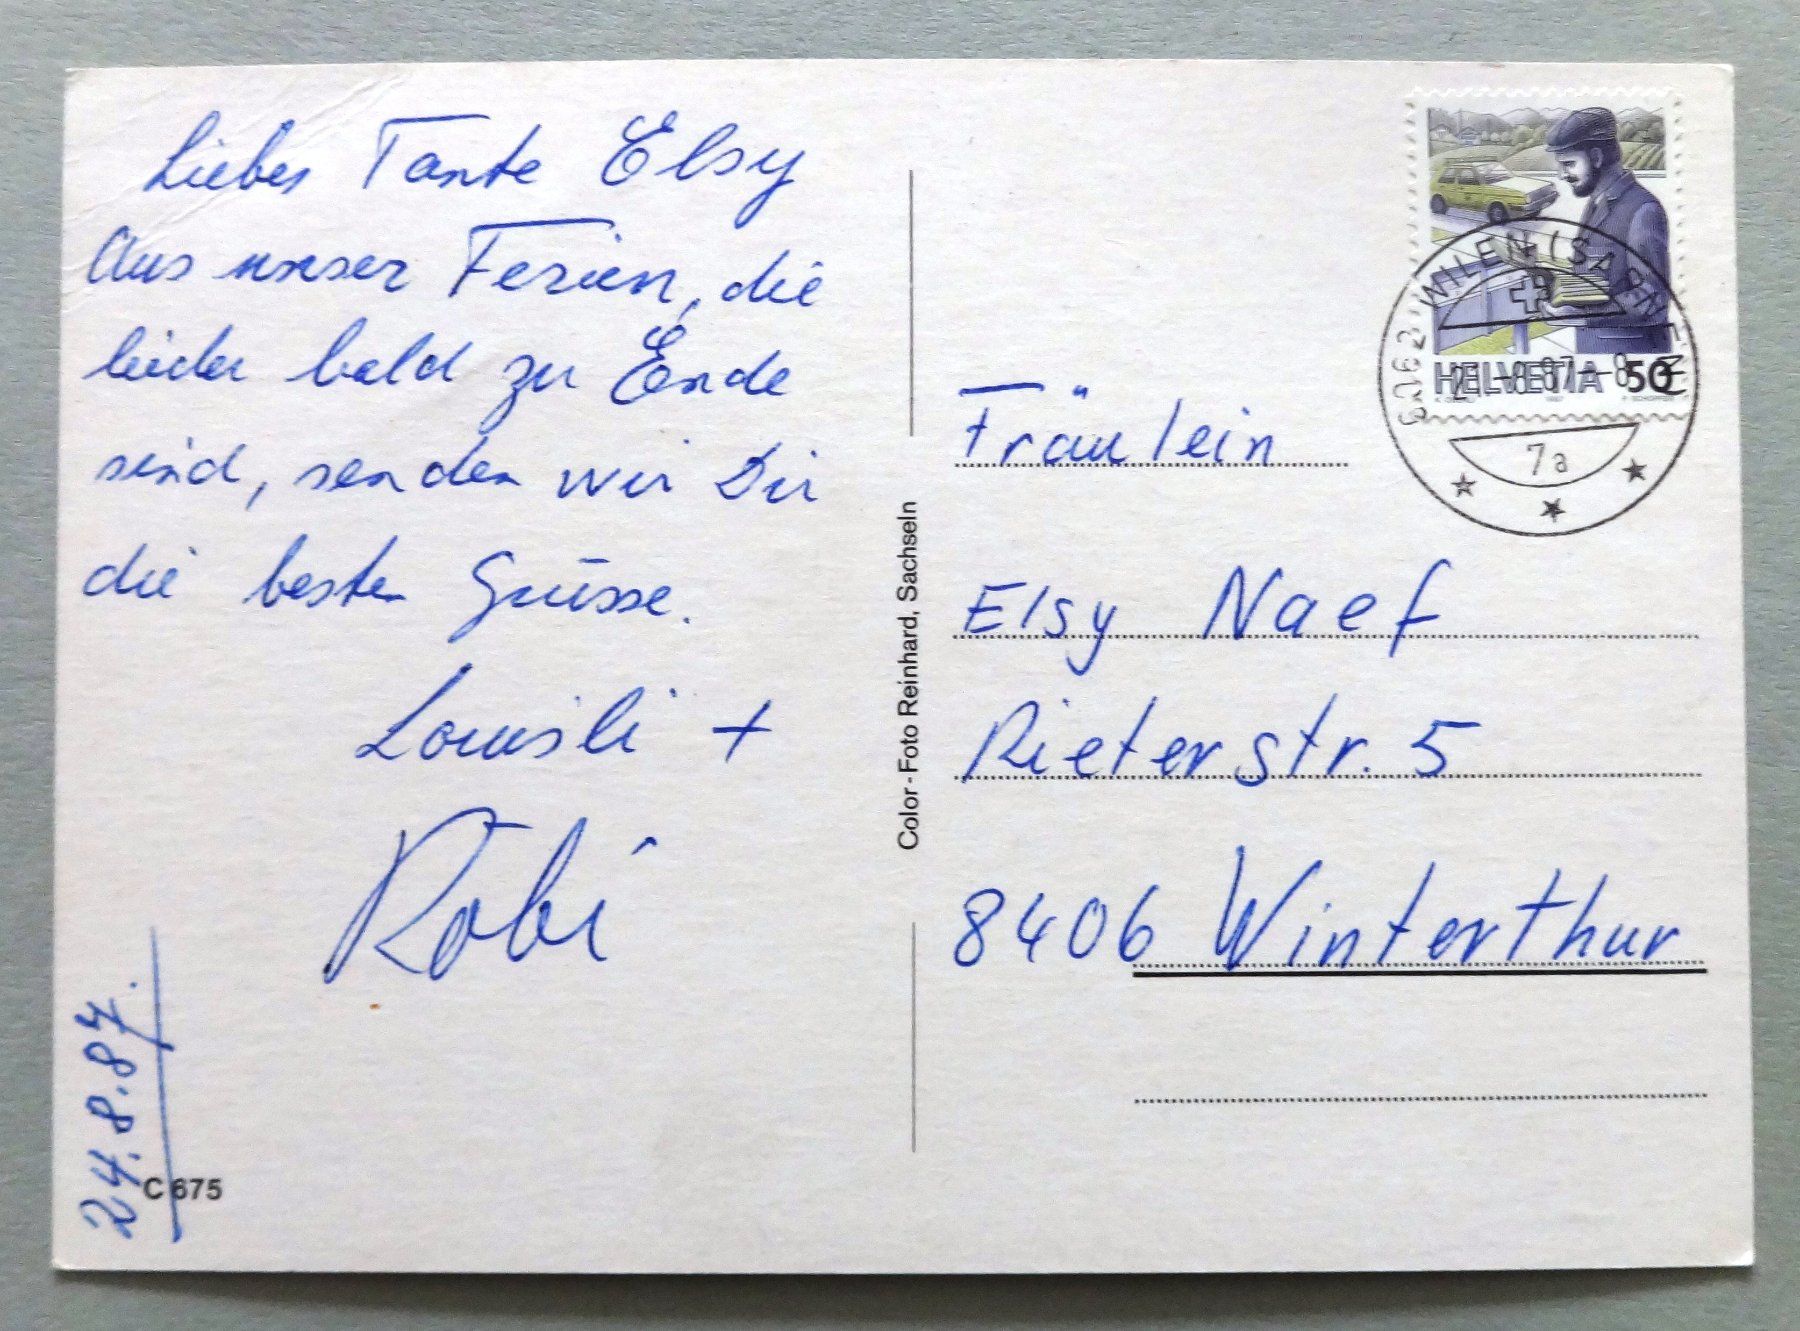 Liebes Tante Elsy
Aus unser Ferien, die
leider bald zu Ende
sind, senden wir Dir
die besten Grüsse.
Louisli +
Robi
24.8.87.
C 675
Color-Foto Reinhard, Sachseln
HELVETIA 50
6062 WILEN (SARNEN)
7a
Fräulein
Elsy Naef
Rieterstr. 5
8406 Winterthur